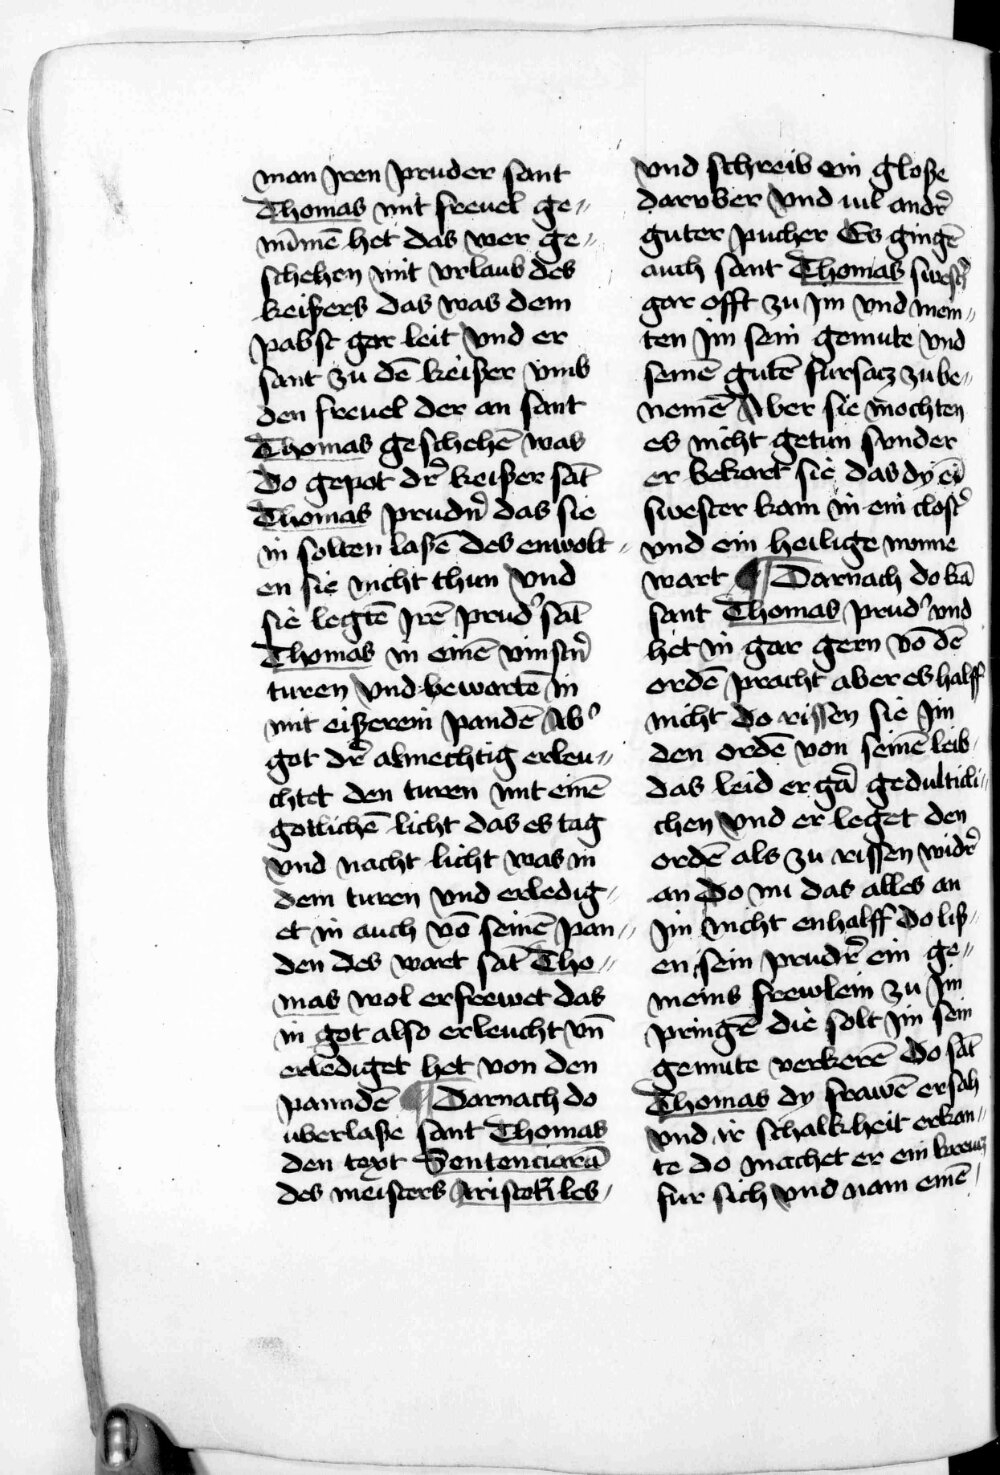 man Jren pruder sant
Thomas mit freuel ge⸗
nu̅me̅ het das wer ge⸗
schehen mit vrlaub des
keißers das was dem
pabst gar leit Vnd er
sant zu de̅ keißer vmb
den freuel der an sant
Thomas geschehe̅ was
Do gepot dr̛ keißer sa̅t
Thomas prudn̛ das sie
in solten laße̅ des enwolt⸗
en sie nicht thun Vnd
sie legte̅ Jre̅ prud̛ sa̅t
Thomas in eine̅ vinstn̛
turen Vnd bewarte̅ in
mit eißerein pande̅ Ab̛
got dr̛ almechtig erleu⸗
chtet den turen mit eine̅
gotliche̅ licht das es tag
Vnd nacht licht was in
dem turen Vnd erledig⸗
et in auch vo̅ seine̅ pan⸗
den des wart sa̅t Tho⸗
mas wol erfrewet das
in got also erleucht vn̅
erlediget het von den
pannde̅ ¶ Darnach do
uberlaße sant Thomas
den text Sentenciaru̅
des meisters Aristotiles⸗
Vnd schreib ein gloße
daruber Vnd uil andr̛
guter pucher Es ginge̅
auch sant Thomas swest̛
gar offt zu Jm Vnd mein⸗
ten Jm sein gemute Vnd
seine̅ gute̅ fursacz zu be⸗
neme̅ Aber sie mochten
es nicht getun sunder
er bekart sie das dy ei̅
swester kam in ein clost̛
Vnd ein heilige nonne
wart ¶ Darnach do ka̅
sant Thomas prud̛ vnd
het in gar gern vo̅ de̅
orde̅ pracht aber es halff
nicht Do rissen sie Jm
den orde̅ von seine̅ leib
das leid er ga̛ gedulticli⸗
chen Vnd er leget den
orde̅ als zu rissen widr̛
an Do nu das alles an
Jm nicht enhalff Do liß⸗
en sein prudr̛ ein ge⸗
meins frewlein zu Jm
pringe̅ die solt Jm sein
gemute verkere̅ Do sa̅t
Thomas dy frawe̅ ersah
Vnd ir schalkheit erkan⸗
te do machet er ein kreucz
fur sich Vnd nam eine̅